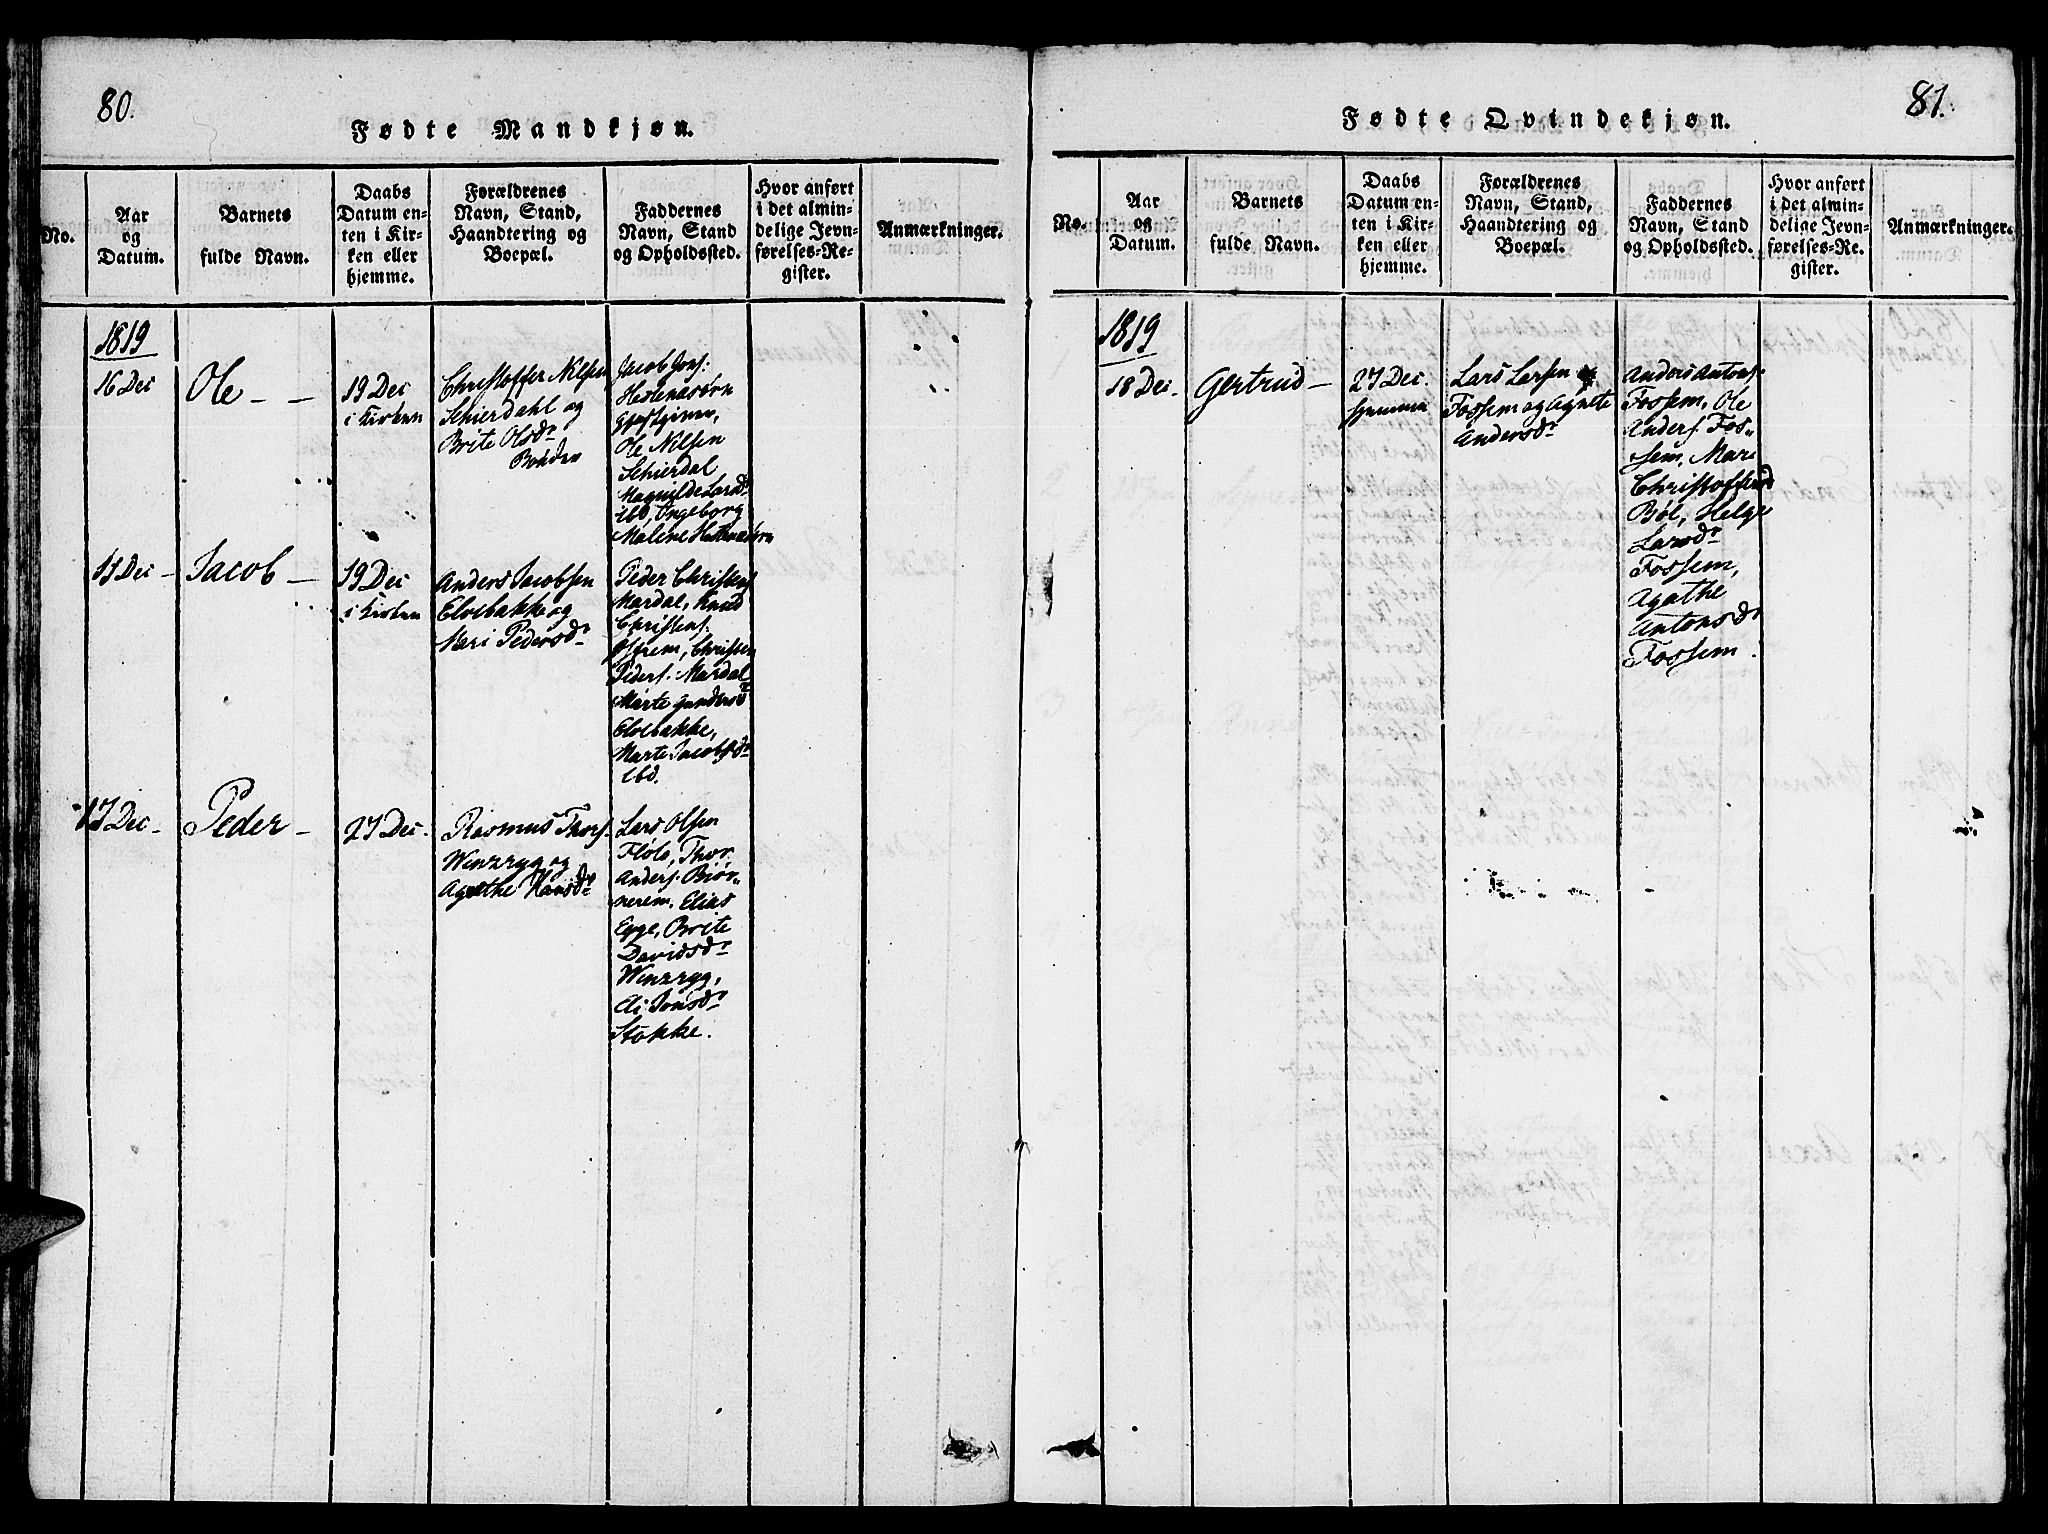 80.
Fødte Mandkjøn.
No.
Aar
og
Datum.
Barnets
fulde Navn.
Daabs
Datum en-
ten i Kir-
ken eller
hjemme.
Forældrenes
Navn, Stand,
Haandtering og
Boepæl.
Faddernes
Navn, Stand
og Opholdssted.
Hvor anført
i det almin-
delige Jevn-
førelses-Re-
gister.
Anmærkninger.
1819
16 Dec
Ole - -
19 Dec
i Kirken
Christoffer Nilsen
Schierdahl og
Brite Olsdr
Jacob Jons:
Hestenesørn
Ole Nilsen
Schierdal
Magnilde Larsdr
ibd, Ingeborg
Malene Hestenesørn
11 Dec -
Jacob -
19 Dec
i Kirken
Anders Jacobsen
Elvebakke og
Mari Pedersdr
Peder Christens
Mardal, Knud
Christens:
Christen
Peders: Mardal
Marte Gundersdr
Elvebakke,
Marte Jacobsdr
ibd.
17 Dec -
Peder -
27 Dec.
Rasmus Thors.
Wenzryg og
Agathe Hansdr
Lars Olsen
Flole, Thor
Anders. Biør-
nerem, Elias
Egge, Brite
Davidsdr
Wenzryg,
Eli Jonsdr
Stokke.
81.
Fødte Qvindekjøn.
No.
Aar
og
Datum.
Barnets
fulde Navn.
Daabs
Datum en-
ten i Kir-
ken eller
hjemme.
Forældrenes
Navn, Stand,
Haandtering og
Boepæl.
Faddernes
Navn, Stand
og Opholdssted.
Hvor anført
i det almin-
delige Jevn-
førelses-Re-
gister.
Anmærkninger.
1819
18 Dec.
Gertrud -
27 Dec.
hjemme
Lars Larsen
Fossem og Agnete
Andersdr
Anders Antons:
Fossem, Ole
Anders. Fos-
sem, Mari
Christoffersd
Bøl, Helge
Larsdr
Fossem,
Agathe
Antonsdr
Fossem.